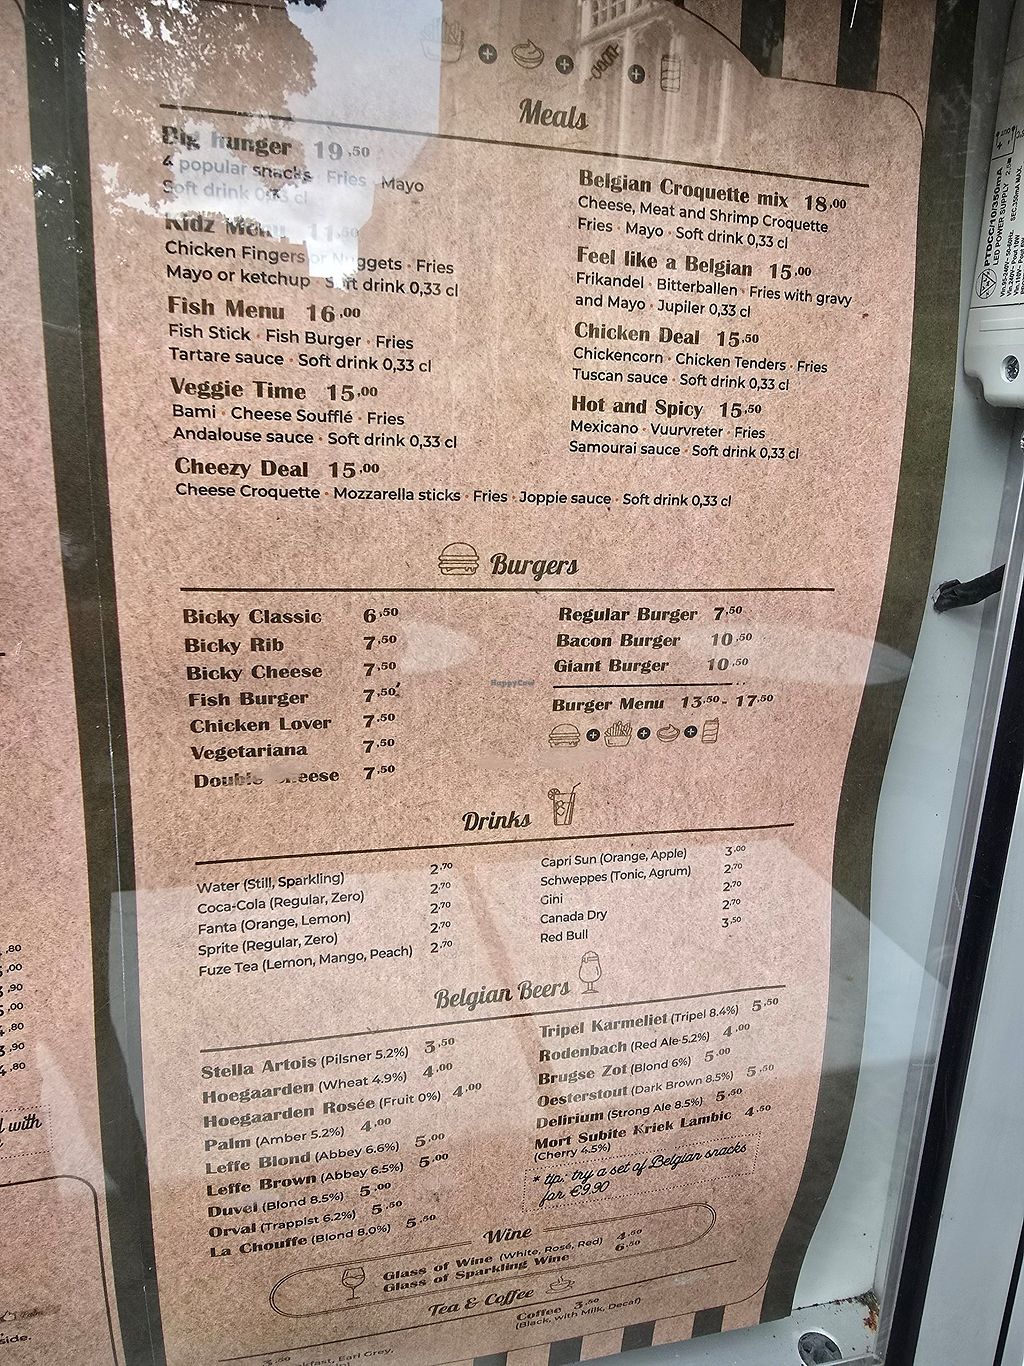 Meals
Big hunger 19,50
4 popular snacks · Fries · Mayo
Soft drink 0,33 cl
Kidz Menu 11,50
Chicken Fingers or Nuggets · Fries
Mayo or ketchup · Soft drink 0,33 cl
Fish Menu 16,00
Fish Stick · Fish Burger · Fries
Tartare sauce · Soft drink 0,33 cl
Veggie Time 15,00
Bami · Cheese Soufflé · Fries
Andalouse sauce · Soft drink 0,33 cl
Cheezy Deal 15,00
Cheese Croquette · Mozzarella sticks · Fries · Joppie sauce · Soft drink 0,33 cl
Belgian Croquette mix 18,00
Cheese, Meat and Shrimp Croquette
Fries · Mayo · Soft drink 0,33 cl
Feel like a Belgian 15,00
Frikandel · Bitterballen · Fries with gravy
and Mayo · Jupiler 0,33 cl
Chicken Deal 15,50
Chickencorn · Chicken Tenders · Fries
Tuscan sauce · Soft drink 0,33 cl
Hot and Spicy 15,50
Mexicano · Vuurvreter · Fries
Samourai sauce · Soft drink 0,33 cl
Burgers
Bicky Classic 6,50
Bicky Rib 7,50
Bicky Cheese 7,50
Fish Burger 7,50
Chicken Lover 7,50
Vegetariana 7,50
Double Cheese 7,50
Regular Burger 7,50
Bacon Burger 10,50
Giant Burger 10,50
Burger Menu 13,50 - 17,50
HappyCow
Drinks
Water (Still, Sparkling) 2,70
Coca-Cola (Regular, Zero) 2,70
Fanta (Orange, Lemon) 2,70
Sprite (Regular, Zero) 2,70
Fuze Tea (Lemon, Mango, Peach) 2,70
Capri Sun (Orange, Apple) 3,00
Schweppes (Tonic, Agrum) 2,70
Gini 2,70
Canada Dry 2,70
Red Bull 3,50
Belgian Beers
Stella Artois (Pilsner 5.2%) 3,50
Hoegaarden (Wheat 4.9%) 4,00
Hoegaarden Rosée (Fruit 0%) 4,00
Palm (Amber 5.2%) 4,00
Leffe Blond (Abbey 6.6%) 5,00
Leffe Brown (Abbey 6.5%) 5,00
Duvel (Blond 8.5%) 5,00
Orval (Trappist 6.2%) 5,50
La Chouffe (Blond 8.0%) 5,50
Tripel Karmeliet (Tripel 8.4%) 5,50
Rodenbach (Red Ale 5.2%) 4,00
Brugse Zot (Blond 6%) 5,00
Oesterstout (Dark Brown 8.5%) 5,50
Delirium (Strong Ale 8.5%) 5,50
Mort Subite Kriek Lambic 4,50
(Cherry 4.5%)
* tip: try a set of Belgian snacks
for €9.90
Wine
Glass of Wine (White, Rosé, Red) 4,50
Glass of Sparkling Wine 6,50
Tea & Coffee
Coffee 3,50
(Black, with Milk, Decaf)
3,50
Earl Grey,
,80
,00
,90
,00
,80
,90
,80
with
side.
PTDCC/10/350mA
LED POWER SUPPLY